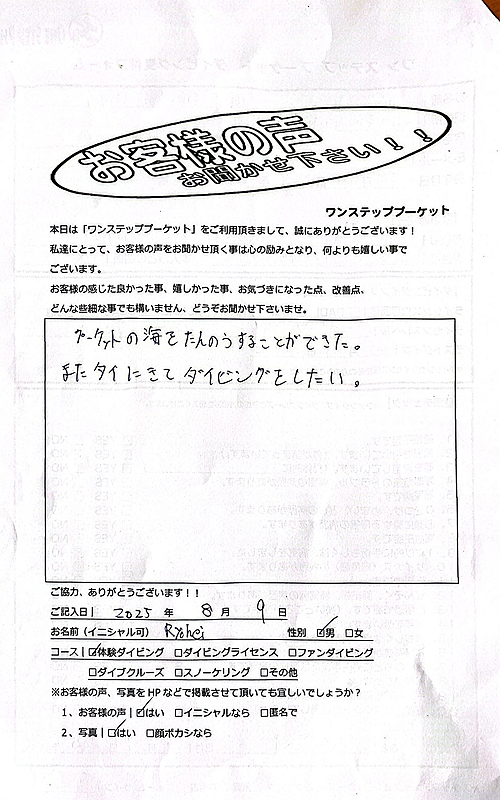 お客様の声
お聞かせ下さい！！
ワンステッププーケット
本日は「ワンステッププーケット」をご利用頂きまして、誠にありがとうございます！
私達にとって、お客様の声をお聞かせ頂く事は心の励みとなり、何よりも嬉しい事で
ございます。
お客様の感じた良かった事、嬉しかった事、お気づきになった点、改善点、
どんな些細な事でも構いません、どうぞお聞かせ下さいませ。
プーケットの海をたんのうすることができた。
またタイにきてダイビングをしたい。
ご協力、ありがとうございます！！
ご記入日| 2025 年 8 月 9 日
お名前（イニシャル可） Ryohei 性別 ☑男 □女
コース | ☑体験ダイビング □ダイビングライセンス □ファンダイビング
□ダイブクルーズ □スノーケリング □その他
※お客様の声、写真をHPなどで掲載させて頂いても宜しいでしょうか？
1、お客様の声 | ☑はい □イニシャルなら □匿名で
2、写真 | ☑はい □顔ボカシなら